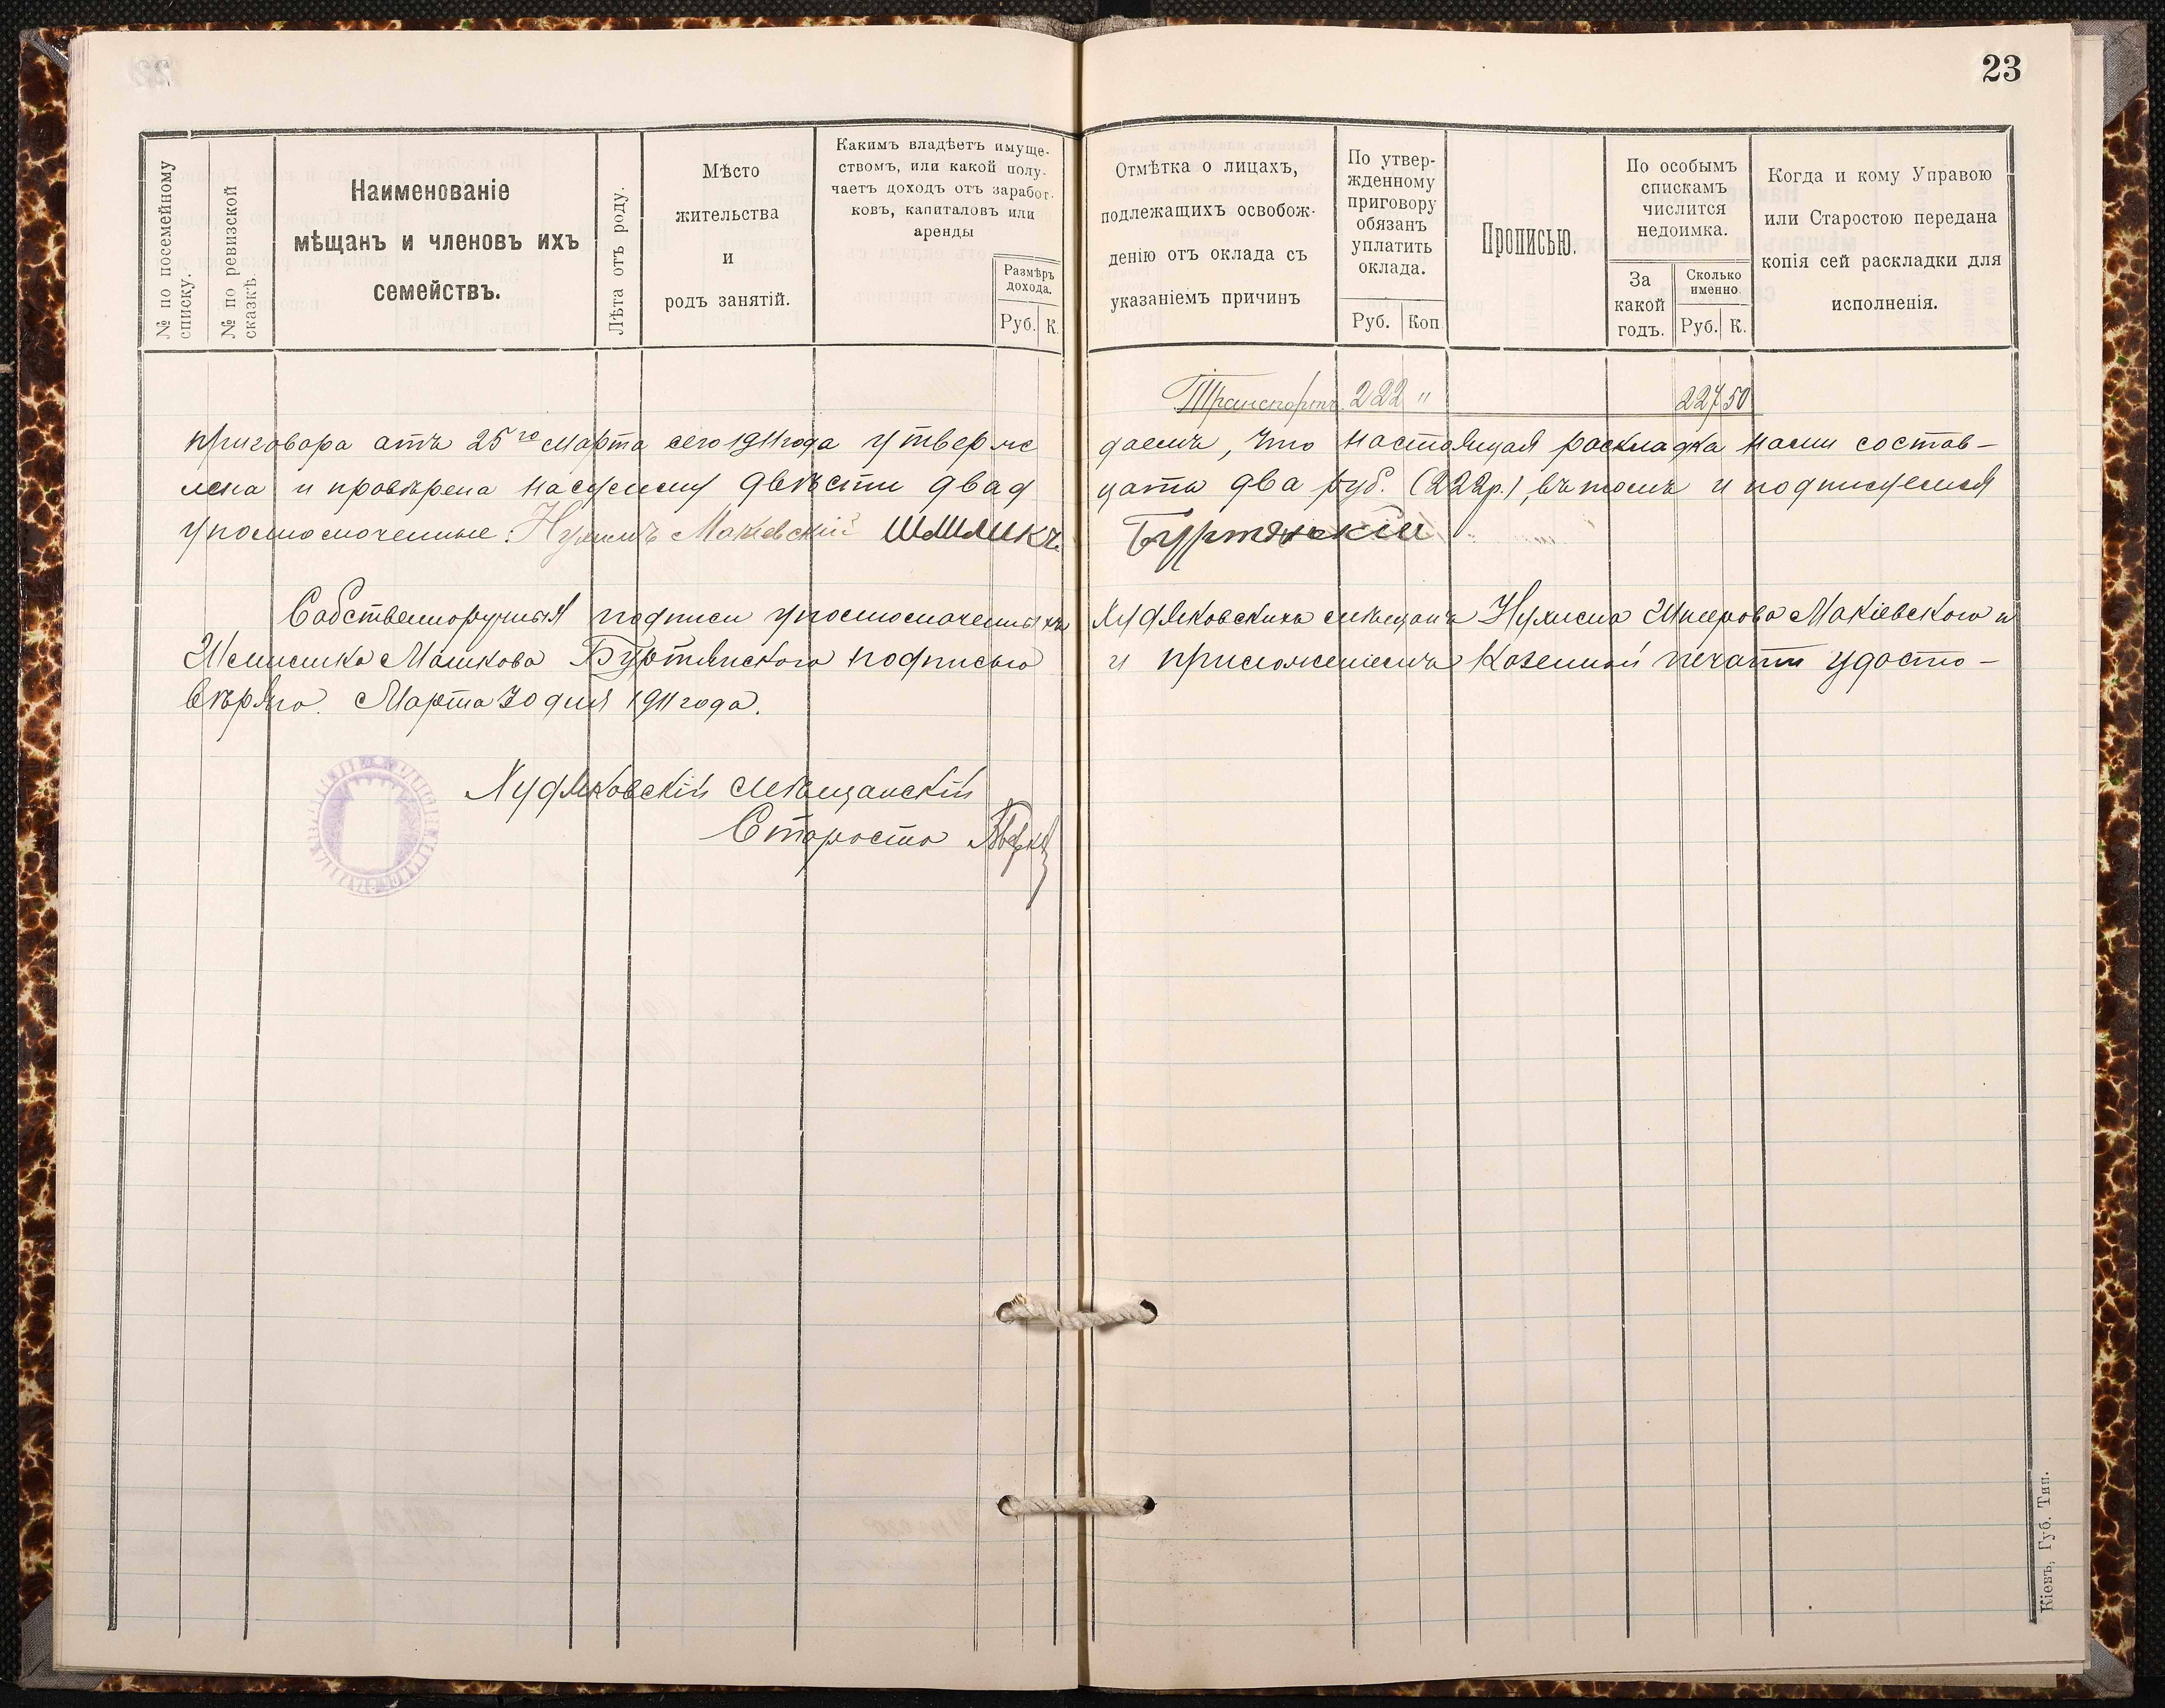 23
№ по посемейному
списку.
№ по ревизской
сказкѣ.
Наименованіе
мѣщанъ и членовъ ихъ
семействъ.
Лѣта отъ роду.
Мѣсто
жительства
и
родъ занятій.
Какимъ владѣетъ имуще-
ствомъ, или какой полу-
чаетъ доходъ отъ заработ-
ковъ, капиталовъ или
аренды
Размѣръ
дохода.
Руб. К.
Отмѣтка о лицахъ,
подлежащихъ освобож-
денію отъ оклада съ
указаніемъ причинъ
По утвер-
жденному
приговору
обязанъ
уплатить
оклада.
Руб. Коп.
Прописью.
По особымъ
спискамъ
числится
недоимка.
За
какой
годъ.
Сколько
именно.
Руб. К.
Когда и кому Управою
или Старостою передана
копія сей раскладки для
исполненія.
Транспортъ 222 " 227 50
приговора отъ 25го Марта сего 1911 года утверж
даемъ, что настоящая раскладка нами состав-
лена и провѣрена на сумму двѣсти двад
цать два руб. (222 р.), въ томъ и подписуемся
уполномоченные: Нухимъ Макіевскій Шмиликъ
Буртянскій
Собственноручныя подписи уполномоченныхъ
Худяковскихъ мѣщанъ Нухима Макіевского и
Шмилика Машкова Буртянского подписью
и приложеніемъ казенной печати удосто-
вѣряю. Марта 30 дня 1911 года.
Худяковскій мѣщанскій
Староста
Кіевъ, Губ. Тип.